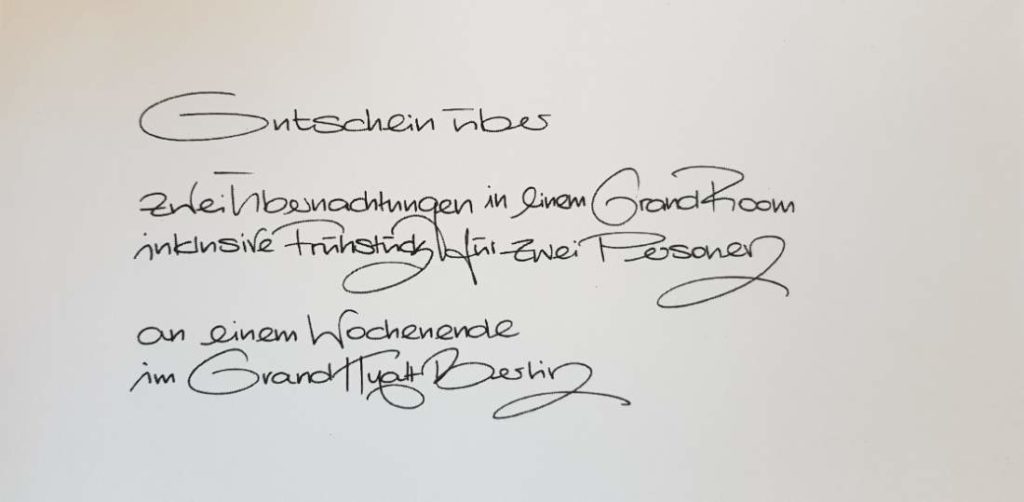 Gutschein über
zwei Übernachtungen in einem Grand Room
inklusive Frühstück für zwei Personen
an einem Wochenende
im Grand Hyatt Berlin